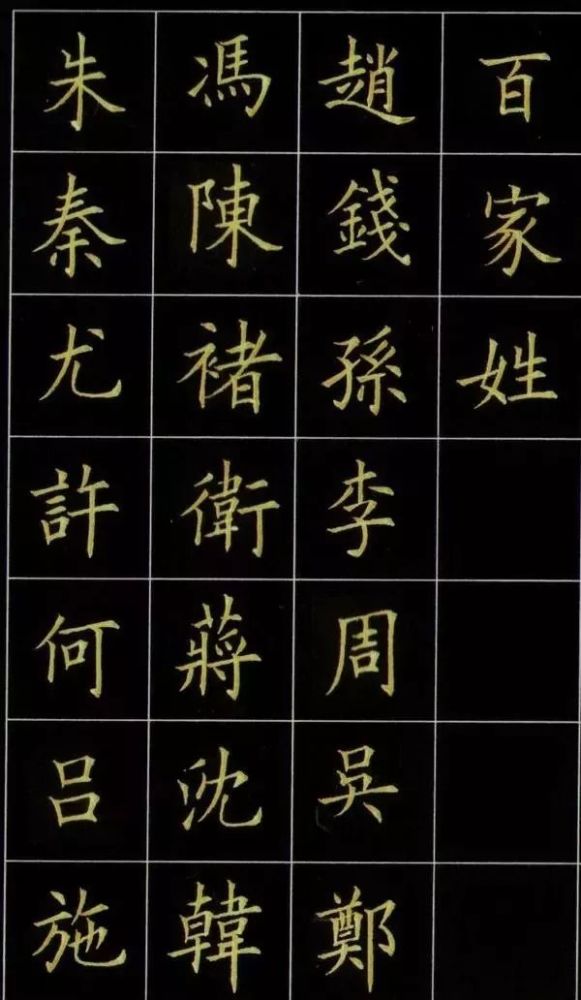 百家姓
趙錢孫李周吳鄭
馮陳褚衛蔣沈韓
朱秦尤許何呂施